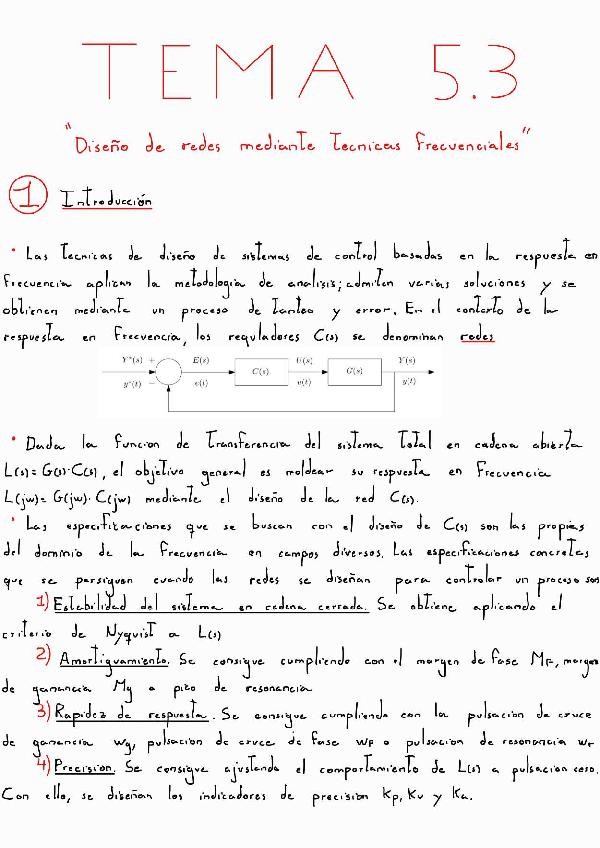 TEMA 5.3
"Diseño de redes mediante tecnicas frecuenciales"
1 Introducción
· Las tecnicas de diseño de sistemas de control basadas en la respuesta en
frecuencia aplican la metodologia de analisis; admiten varias soluciones y se
obtienen mediante un proceso de tanteo y error. En el contexto de la
respuesta en frecuencia, los reguladores C(s) se denominan redes
Y*(s) + E(s) U(s) Y(s)
C(s) G(s)
y*(t) − e(t) u(t) y(t)
· Dada la funcion de transferencia del sistema total en cadena abierta
L(s)= G(s)·C(s), el objetivo general es moldear su respuesta en frecuencia
L(jw)= G(jw)·C(jw) mediante el diseño de la red C(s).
· Las especificaciones que se buscan con el diseño de C(s) son las propias
del dominio de la frecuencia en campos diversos. Las especificaciones concretas
que se persiguen cuando las redes se diseñan para controlar un proceso son
1) Estabilidad del sistema en cadena cerrada. Se obtiene aplicando el
criterio de Nyquist a L(s)
2) Amortiguamiento. Se consigue cumpliendo con el margen de fase MF, margen
de ganancia Mg o pico de resonancia
3) Rapidez de respuesta. Se consigue cumpliendo con la pulsacion de cruce
de ganancia wg, pulsacion de cruce de fase wF o pulsacion de resonancia wr
4) Precision. Se consigue ajustando el comportamiento de L(s) a pulsacion cero.
Con ello, se diseñan los indicadores de precision Kp, Kv y Ka.